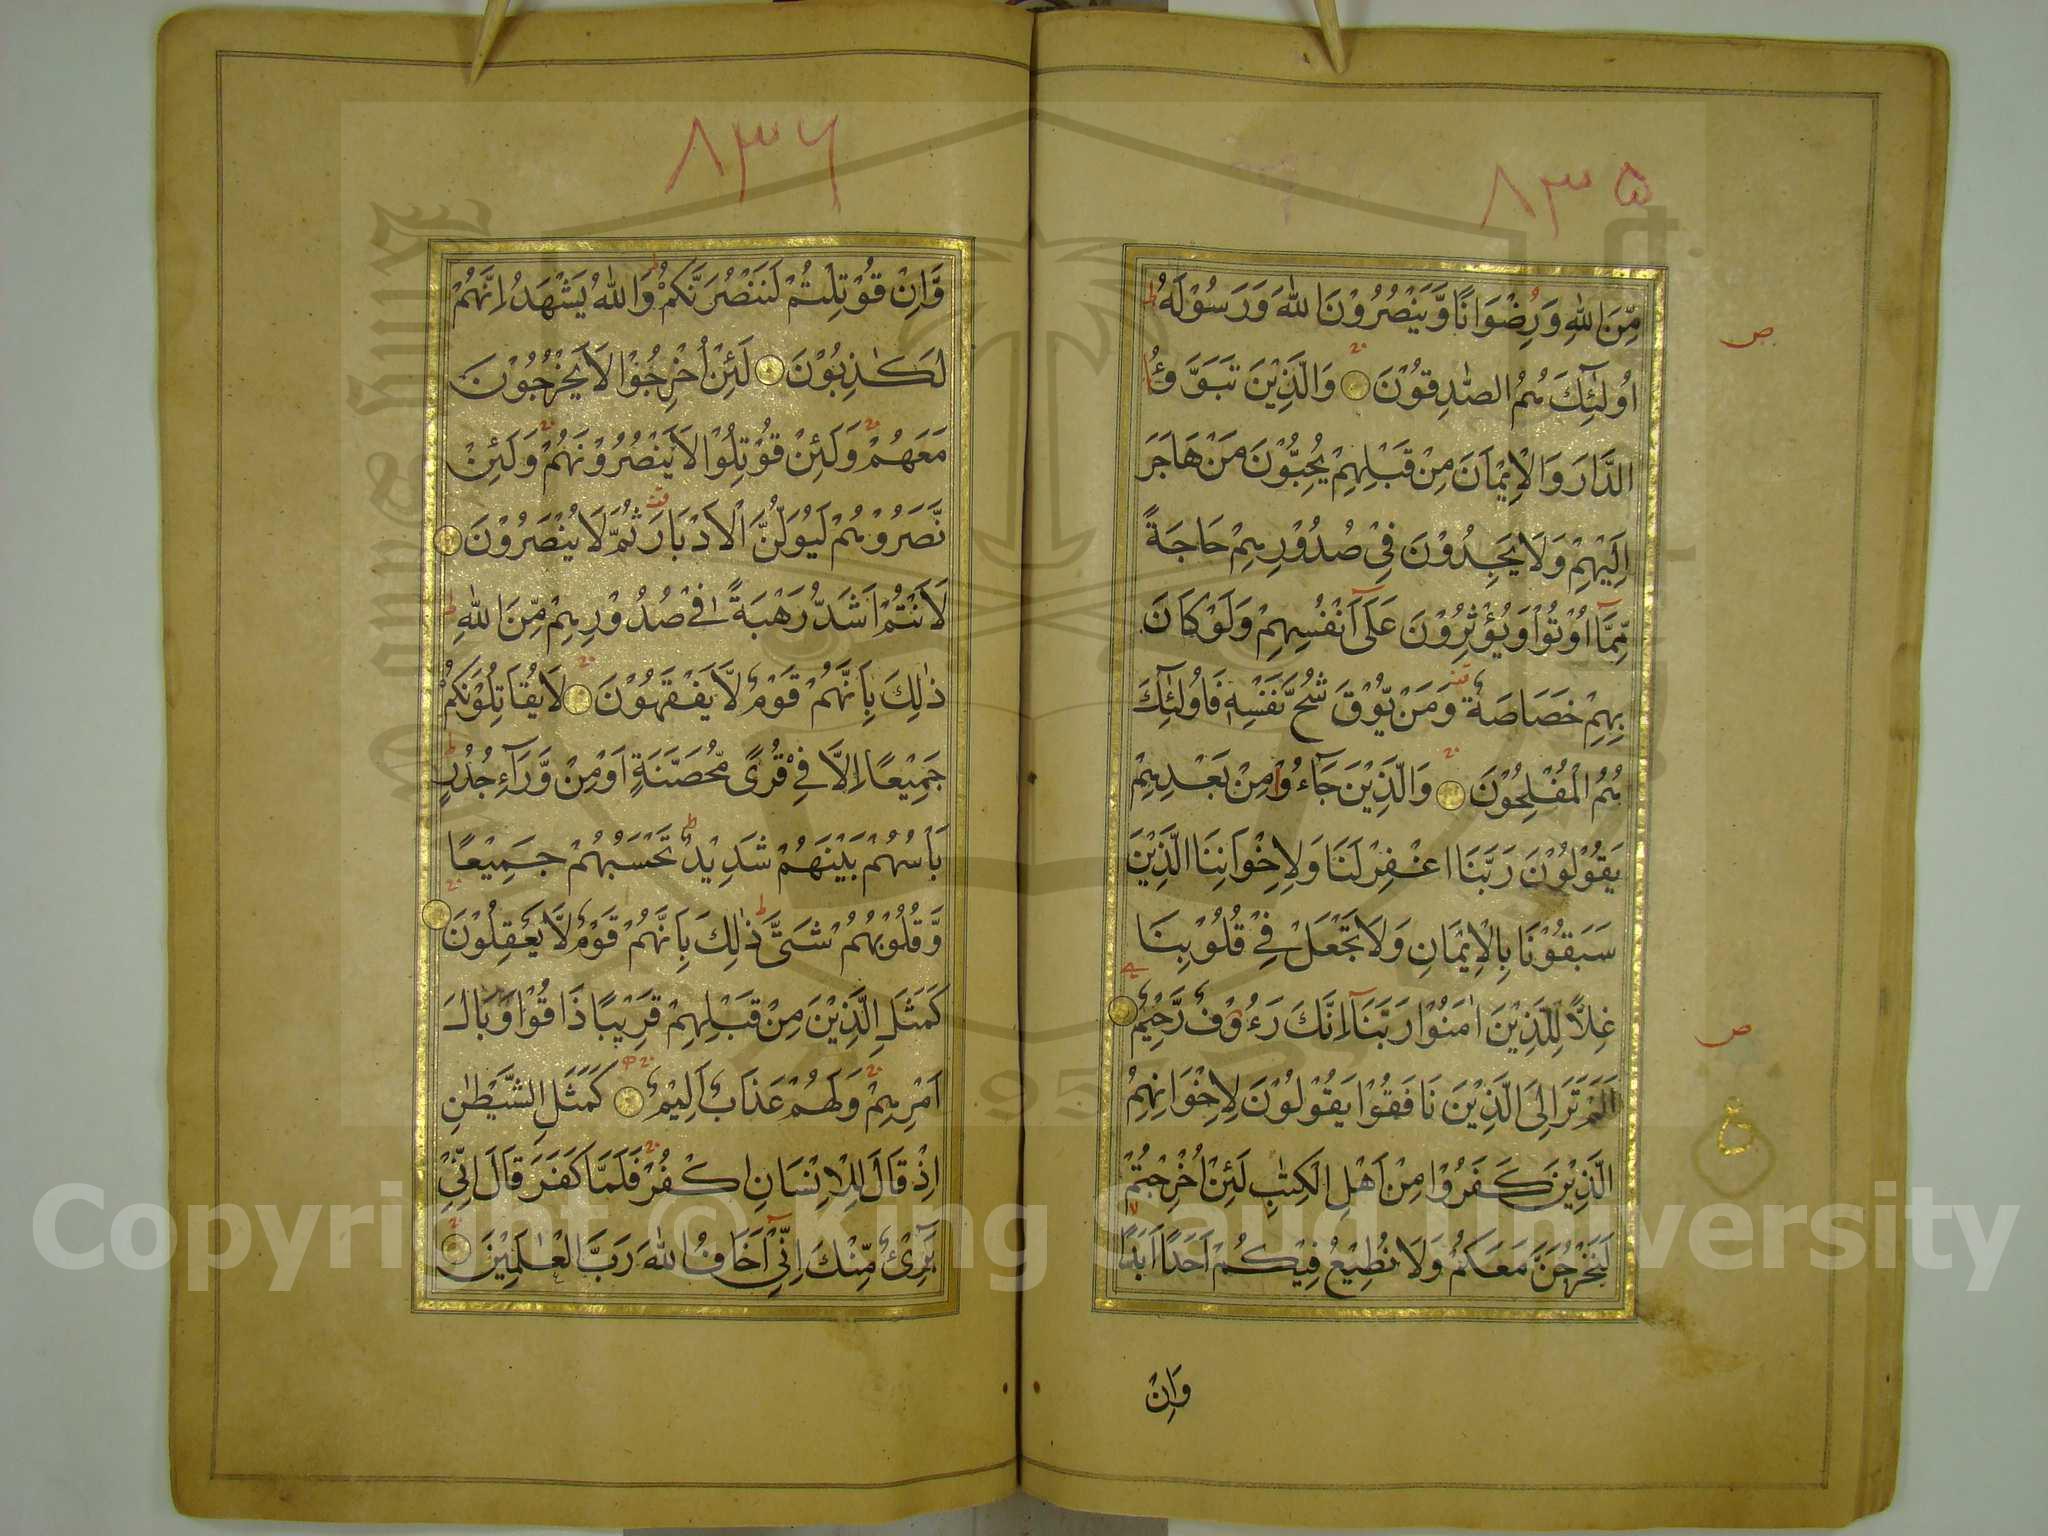 ٨٣٥
مِّنَ اللهِ وَرِضْوَانًا وَّيَنْصُرُوْنَ اللهَ وَرَسُوْلَهُ ط
ص
اُولٰٓئِكَ هُمُ الصّٰدِقُوْنَ وَالَّذِيْنَ تَبَوَّؤُا
الدَّارَ وَالْاِيْمَانَ مِنْ قَبْلِهِمْ يُحِبُّوْنَ مَنْ هَاجَرَ
اِلَيْهِمْ وَلَا يَجِدُوْنَ فِيْ صُدُوْرِهِمْ حَاجَةً
مِّمَّا اُوْتُوْا وَيُؤْثِرُوْنَ عَلٰٓى اَنْفُسِهِمْ وَلَوْ كَانَ
بِهِمْ خَصَاصَةٌ وَمَنْ يُّوْقَ شُحَّ نَفْسِهٖ فَاُولٰٓئِكَ
هُمُ الْمُفْلِحُوْنَ وَالَّذِيْنَ جَآءُوْا مِنْ بَعْدِهِمْ
يَقُوْلُوْنَ رَبَّنَا اغْفِرْلَنَا وَلِاِخْوَانِنَا الَّذِيْنَ
سَبَقُوْنَا بِالْاِيْمَانِ وَلَا تَجْعَلْ فِيْ قُلُوْبِنَا
غِلًّا لِّلَّذِيْنَ اٰمَنُوْا رَبَّنَآ اِنَّكَ رَءُوْفٌ رَّحِيْمٌ
ص
اَلَمْ تَرَ اِلَى الَّذِيْنَ نَافَقُوْا يَقُوْلُوْنَ لِاِخْوَانِهِمُ
الَّذِيْنَ كَفَرُوْا مِنْ اَهْلِ الْكِتٰبِ لَئِنْ اُخْرِجْتُمْ
لَنَخْرُجَنَّ مَعَكُمْ وَلَا نُطِيْعُ فِيْكُمْ اَحَدًا اَبَدًا
وَاِنْ
٨٣٦
وَّاِنْ قُوْتِلْتُمْ لَنَنْصُرَنَّكُمْ وَاللهُ يَشْهَدُ اِنَّهُمْ
لَكٰذِبُوْنَ لَئِنْ اُخْرِجُوْا لَا يَخْرُجُوْنَ
مَعَهُمْ وَلَئِنْ قُوْتِلُوْا لَا يَنْصُرُوْنَهُمْ وَلَئِنْ
نَّصَرُوْهُمْ لَيُوَلُّنَّ الْاَدْبَارَ ثُمَّ لَا يُنْصَرُوْنَ
لَاَنْتُمْ اَشَدُّ رَهْبَةً فِيْ صُدُوْرِهِمْ مِّنَ اللهِ ط
ذٰلِكَ بِاَنَّهُمْ قَوْمٌ لَّا يَفْقَهُوْنَ لَا يُقَاتِلُوْنَكُمْ
جَمِيْعًا اِلَّا فِيْ قُرًى مُّحَصَّنَةٍ اَوْ مِنْ وَّرَآءِ جُدُرٍ ط
بَاْسُهُمْ بَيْنَهُمْ شَدِيْدٌ ط تَحْسَبُهُمْ جَمِيْعًا
وَّقُلُوْبُهُمْ شَتّٰى ط ذٰلِكَ بِاَنَّهُمْ قَوْمٌ لَّا يَعْقِلُوْنَ
كَمَثَلِ الَّذِيْنَ مِنْ قَبْلِهِمْ قَرِيْبًا ذَاقُوْا وَبَالَ
اَمْرِهِمْ وَلَهُمْ عَذَابٌ اَلِيْمٌ كَمَثَلِ الشَّيْطٰنِ
اِذْ قَالَ لِلْاِنْسَانِ اكْفُرْ فَلَمَّا كَفَرَ قَالَ اِنِّيْ
بَرِيْٓءٌ مِّنْكَ اِنِّيْٓ اَخَافُ اللهَ رَبَّ الْعٰلَمِيْنَ
Copyright © King Saud University